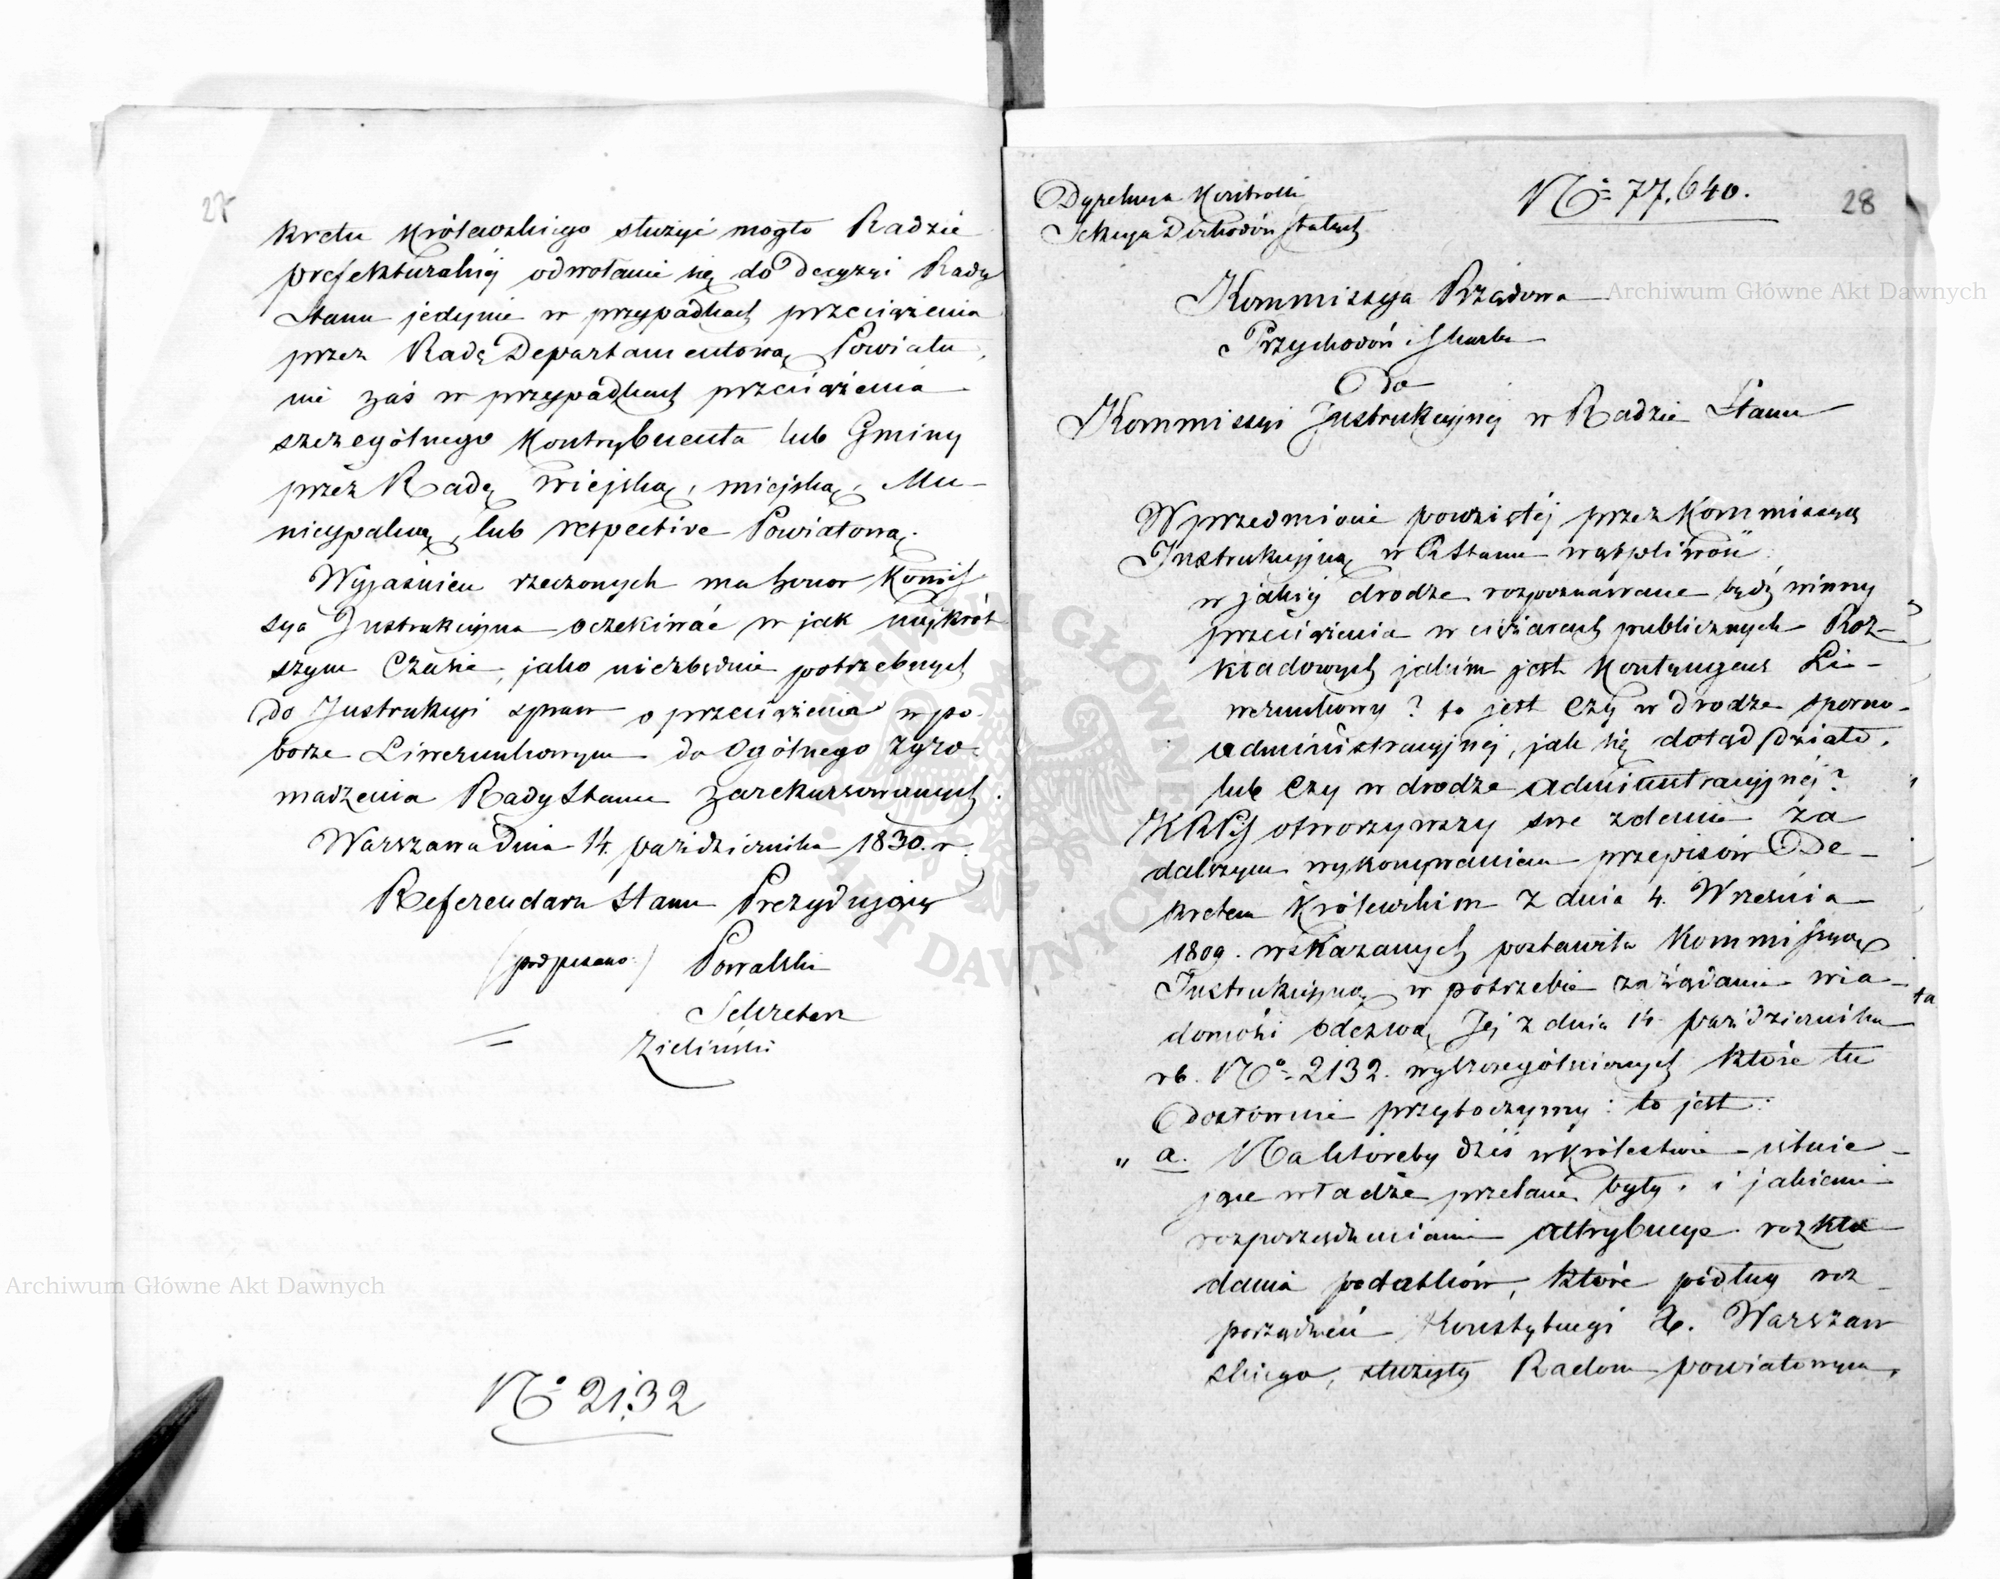 27
kretu Królewskiego służyć mogło Radzie
prefekturalnéj odwołanie się do Decyzyi Rady
Stanu jedynie w przypadkach przeciążenia
przez Radę Departamentową Powiatu,
nie zaś w przypadkach przeciążenia
szczególnego Kontrybuenta lub Gminy
przez Radę wiejską, miejską, Mu-
nicypalną, lub respective Powiatową.
Wyjaśnień rzeczonych ma honor Kommis-
sya Instrukcyjna oczekiwać w jak najkrót-
szym Czasie, jako niezbędnie potrzebnych
do Instrukcyi spraw o przeciążenia w po-
borze Liwerunkowym do Ogólnego Zgro-
madzenia Rady Stanu zarekursowanych.
Warszawa dnia 14 października 1830. r.
Referendarz Stanu Prezydujący
(podpisano:) Powalski
Sekretarz
Zieliński
No 2132
Dyrekcya Kontrolli
Sekcya Dochodów Stałych
No 77.640.
28
Kommissya Rządowa
Przychodów i Skarbu
Do
Kommissyi Instrukcyjnéj w Radzie Stanu
W przedmiocie powziętéj przez Kommissyą
Instrukcyjną w R Stanu wątpliwości:
w jakiéj drodze rozpoznawane być winny
przeciążenia w ciężarach publicznych Roz-
kładowych jakim jest Kontyngens Li-
werunkowy? to jest Czy w drodze sporno-
administracyjnéj, jak się dotąd działo,
lub Czy w drodze administracyjnéj?
KRPS otworzywszy swe zdanie za
dalszym wykonywaniem przepisów De-
kretem Królewskim z dnia 4. Września
1809. wskazanych postawiła Kommissyą
Instrukcyjną w potrzebie zażądania wia-
domości odezwą Jéj z dnia 14 października
rb. No 2132. wyszczególnionych które tu
dosłownie przytoczymy: to jest:
„ a. Na któreby dziś w Królestwie istnie-
jące władze przelane były, i jakiemi
rozporządzeniami attrybucye rozkła-
dania podatków, które podług roz-
porządzeń Konstytucyi X. Warszaw-
skiego, służyły Radom powiatowym,
ta
Archiwum Główne Akt Dawnych
Archiwum Główne Akt Dawnych
ARCHIWUM GŁÓWNE AKT DAWNYCH